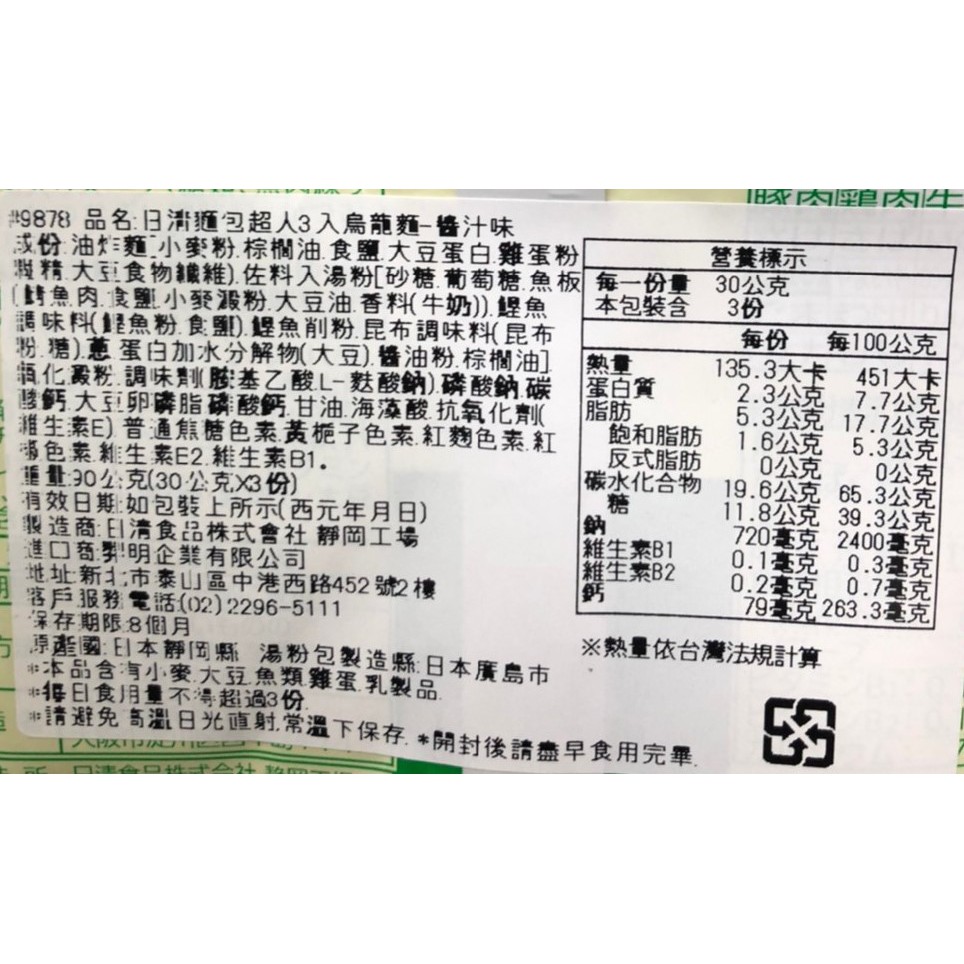 豚肉鶏肉牛
#9878 品名:日清麵包超人3入烏龍麵-醬汁味
成份:油炸麵[小麥粉.棕櫚油.食鹽.大豆蛋白.雞蛋粉
精.大豆食物纖維).佐料入湯粉[砂糖.葡萄糖.魚板
(鯖魚肉.食鹽.小麥澱粉.大豆油.香料(牛奶)).鰹魚
調味料(鰹魚粉.食鹽).鰹魚削粉.昆布調味料(昆布
粉.糖).蔥.蛋白加水分解物(大豆).醬油粉.棕櫚油]
化澱粉.調味劑(胺基乙酸.L-麩酸鈉).磷酸鈉.碳
酸鈣.大豆卵磷脂.磷酸鈣.甘油.海藻酸.抗氧化劑(
維生素E).普通焦糖色素.黃梔子色素.紅麴色素.紅
色素.維生素E2.維生素B1。
重量:90公克(30公克X3份)
有效日期:如包裝上所示(西元年月日)
製造商:日清食品株式會社 靜岡工場
進口商:明企業有限公司
地址:新北市泰山區中港西路452號2樓
客戶服務電話:(02)2296-5111
保存期限:8個月
原產國:日本靜岡縣 湯粉包製造縣:日本廣島市
*本品含有小麥.大豆.魚類.雞蛋.乳製品.
*每日食用量不得超過3份.
*請避免高溫日光直射,常溫下保存.*開封後請盡早食用完畢.
營養標示
每一份量 30公克
本包裝含 3份
每份 每100公克
熱量 135.3大卡 451大卡
蛋白質 2.3公克 7.7公克
脂肪 5.3公克 17.7公克
飽和脂肪 1.6公克 5.3公克
反式脂肪 0公克 0公克
碳水化合物 19.6公克 65.3公克
糖 11.8公克 39.3公克
鈉 720毫克 2400毫克
維生素B1 0.1毫克 0.3毫克
維生素B2 0.2毫克 0.7毫克
鈣 79毫克 263.3毫克
※熱量依台灣法規計算